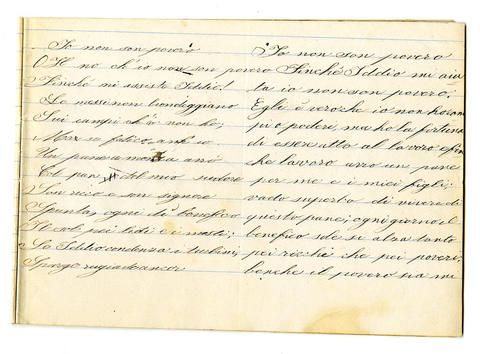 Io non son povero
Oh no ch'io non son povero
Finchè mi assiste Iddio!
Le messi non biondeggiano
Sui campi ch'io non ho;
Ma
Un pane a
Col pan del mio sudore
Son ricco e son signore
Spunta ogni dì benefico
Il sol pei lidi e i
Se Iddio condensa i turbini
Sparge rugiade ancor
Io non son povero
Finchè Iddio mi aiu
ta io non son povero;
Egli è vero che io non ho
pi o podere, ma ho la fortuna
di essere atto al lavoro e fin
che lavoro avrò un pane
per me e i miei figli;
vado superbo di vivere di
questo pane; ogni giorno il
benefico sole si alza tanto
pei ricchi che pei poveri;
benchè il povero sia mi